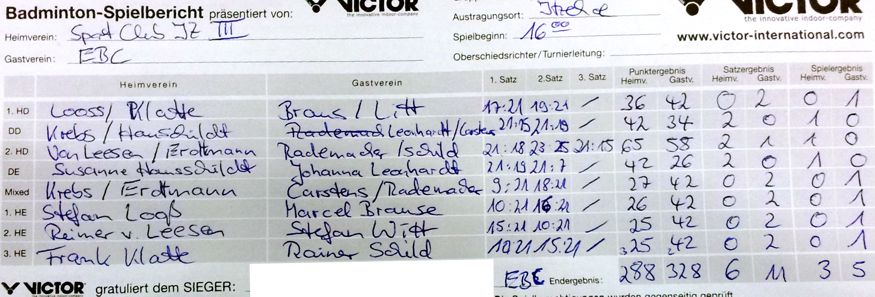 Badminton-Spielbericht präsentiert von: VICTOR the innovative indoor-company Austragungsort: Itzehoe VICTOR the innovative indoor-company
Heimverein: Sport Club IZ III Spielbeginn: 16 00 www.victor-international.com
Gastverein: EBC Oberschiedsrichter/Turnierleitung:
Punktergebnis Satzergebnis Spielergebnis
Heimverein Gastverein 1. Satz 2. Satz 3. Satz Heimv. Gastv. Heimv. Gastv. Heimv. Gastv.
1. HD Looss/ Klatte Braus / Litt 17:21 19:21 / 36 42 0 2 0 1
DD Krebs / Hausschildt Leonhardt/Carstens 21:15 21:19 / 42 34 2 0 1 0
2. HD Van Leesen / Erdtmann Rademader /Schild 21:18 23:25 21:15 65 58 2 1 1 0
DE Susanne Hausschildt Johanna Leonhardt 21:19 21:7 / 42 26 2 0 1 0
Mixed Krebs / Erdtmann Carstens/Rademader 9:21 18:21 / 27 42 0 2 0 1
1. HE Stefan Looß Marcel Brause 10:21 16:21 / 26 42 0 2 0 1
2. HE Reimer v. Leesen Stefan Witt 15:21 10:21 / 25 42 0 2 0 1
3. HE Frank Klatte Rainer Schild 10:21 15:21 / 25 42 0 2 0 1
VICTOR gratuliert dem SIEGER: EBC Endergebnis: 288 328 6 11 3 5